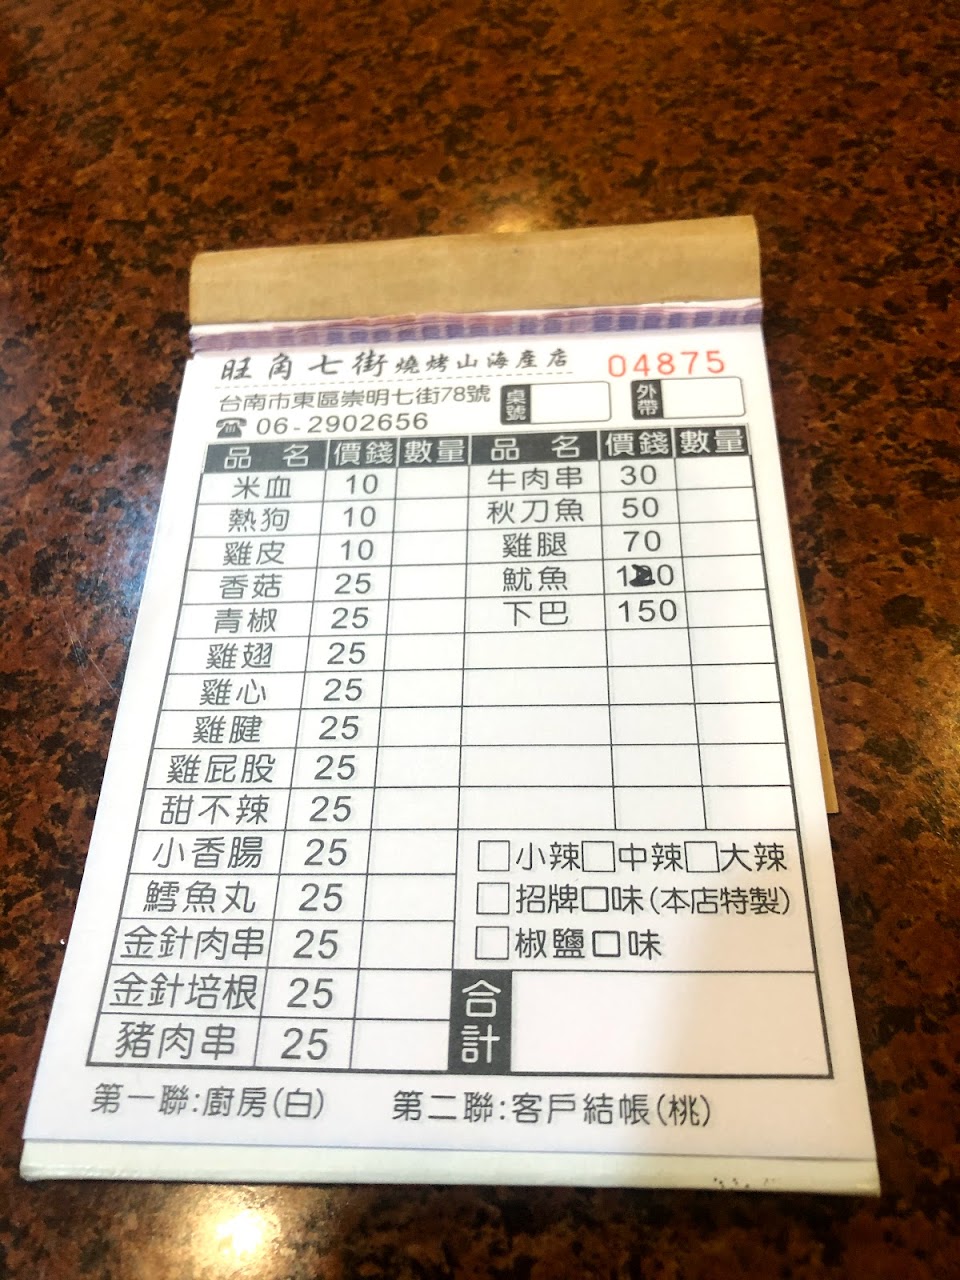 旺角七街燒烤山海產店 04875
台南市東區崇明七街78號 桌號 外帶
☎ 06-2902656
品名 價錢 數量 品名 價錢 數量
米血 10 牛肉串 30
熱狗 10 秋刀魚 50
雞皮 10 雞腿 70
香菇 25 魷魚
青椒 25 下巴 150
雞翅 25
雞心 25
雞腱 25
雞屁股 25
甜不辣 25
小香腸 25 □小辣□中辣□大辣
鱈魚丸 25 □招牌口味(本店特製)
金針肉串 25 □椒鹽口味
金針培根 25 合計
豬肉串 25
第一聯:廚房(白) 第二聯:客戶結帳(桃)